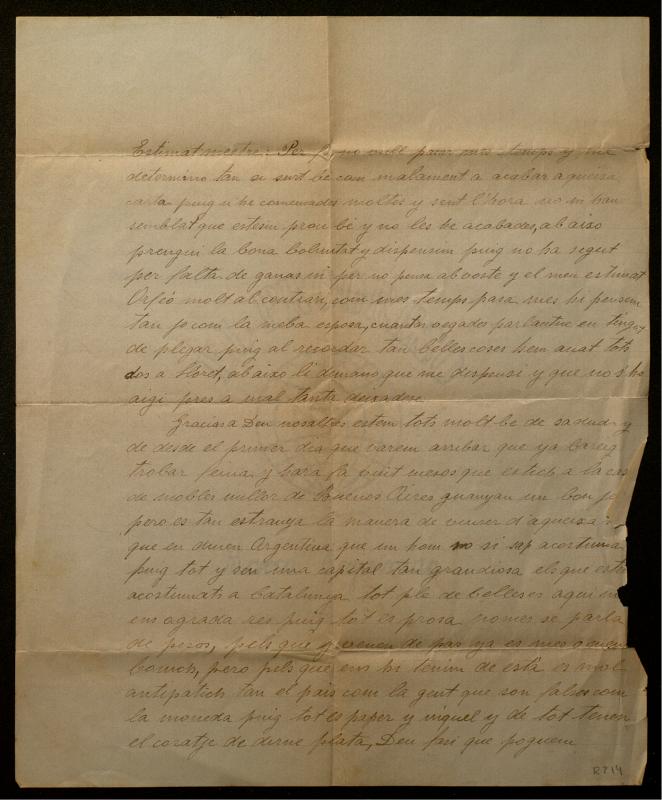 Estimat mestre: Per fi, no vull pasar més temps y me
determino tan si surt be com malament a acabar aqueixa
carta puig n he comensades moltes y sent l'hora no m han
semblat que estesin prou bé y no les he acabades, ab aixo
prengui la bona boluntat y dispensim puig no ha segut
per falta de ganas ni per no pensa ab voste y el meu estimat
Orfeó molt al contrari, com mes temps pasa mes hi pensem
tan jo com la meba esposa, cuantas vegades parlantne en tingut
de plegar, puig al recordar tan belles coses hem anat tots
dos a lloret, ab aixo li demano que me dispensi y que no s' ho
aigi pres a mal tanta
Gracias a Deu nosaltres estem tots molt be de salud y
de desde el primer dia que varem arribar que ya bareig
trobar feina y bara fa vuit mesos que estich a la casa
de mobles millor de Buenos Aires guanyan un bon
pero es tan estranya la manera de viurer d'aqueixa
que en diuen Argentina que un hom no si sap acostumar
puig tot y sen una capital tan grandiosa els que
acostumats a Catalunya tot ple de belleses aqui
ens agrada res puig tot es prosa nomes se parla
de pesos, pels que y venen de pas ya es mes
bonich, pero pels que ens hi tenim de està es mol
antipatich tan el pais com la gent que son falsos com
la moneda puig tot es paper y niquel y de tot tenen
el coratje de dirne plata, Deu fasi que poguem
R714